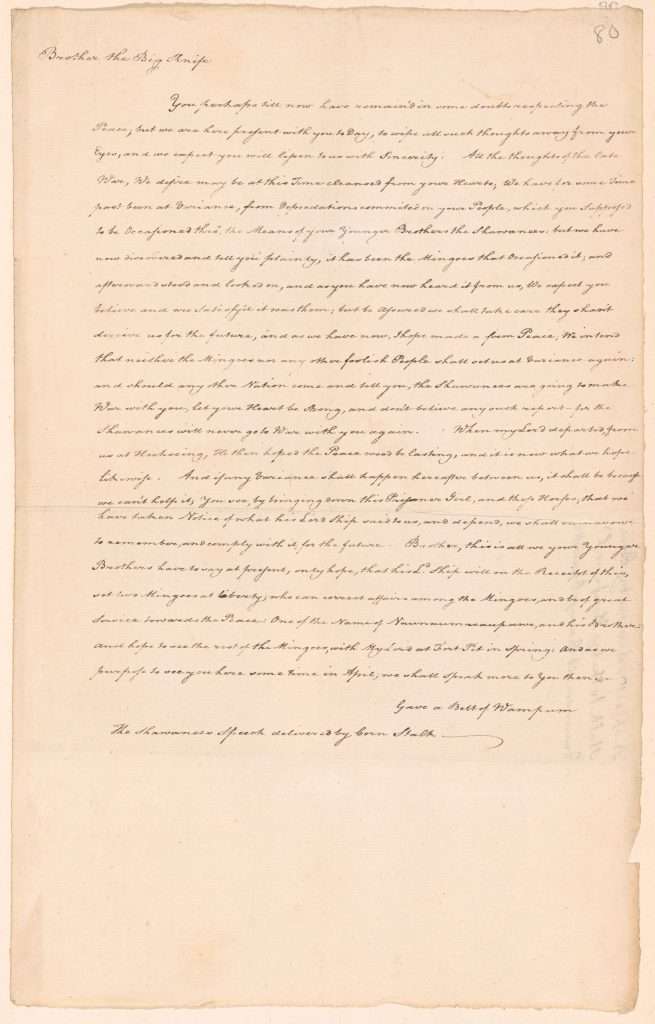 80
Brother the Big Knife
You perhaps till now have remain'd in some doubts respecting the
Peace, but we are here present with you to Day, to wipe all such thoughts away from your
Eyes, and we expect you will listen to us with Sincerity. All the thoughts of the late
War, We desire may be at this Time cleansed from your Hearts; We have for some Time
past been at Variance, from Depredations committed on your People, which you Supposed
to be Occasioned thro' the Means of your Younger Brothers the Shawanees: but we have
now discovered and tell you plainly, it has been the Mingoes that Occasioned it; and
afterward stood and looked on, and as you have now heard it from us, We expect you
believe and are Satisfy'd it was them; but be Assured we shall take care they shan't
deceive us for the future, and as we have now, I hope made a firm Peace, We intend
that neither the Mingoes nor any other foolish People shall set us at Variance again:
and should any other Nation come and tell you, the Shawanees are going to make
War with you, let your Heart be Strong, and don't believe any such report – for the
Shawanees will never go to War with you again. When my Lord departed from
us at Hockocing, He then hoped the Peace wou'd be lasting, and it is now what we hope
likewise. And if any Variance shall happen hereafter between us, it shall be because
we can't help it, You see, by bringing down this Prisoner Girl, and these Horses, that we
have taken Notice of what his Lord Ship said to us, and depend, we shall endeavour
to remember, and comply with it, for the future. Brother, this is all we your Younger
Brothers have to say at present, only hope, that his Ld. Ship will on the Receipt of this,
set two Mingoes at Liberty; who can correct affairs among the Mingoes, and be of great
Service towards the Peace: One of the Name of and his Brother:
And hope to see the rest of the Mingoes, with My Lord at Fort Pit in Spring: And as we
purpose to see you here some time in April; we shall speak more to You then –
Gave a Belt of Wampum
The Shawanees Speech delivered by Corn Stalk